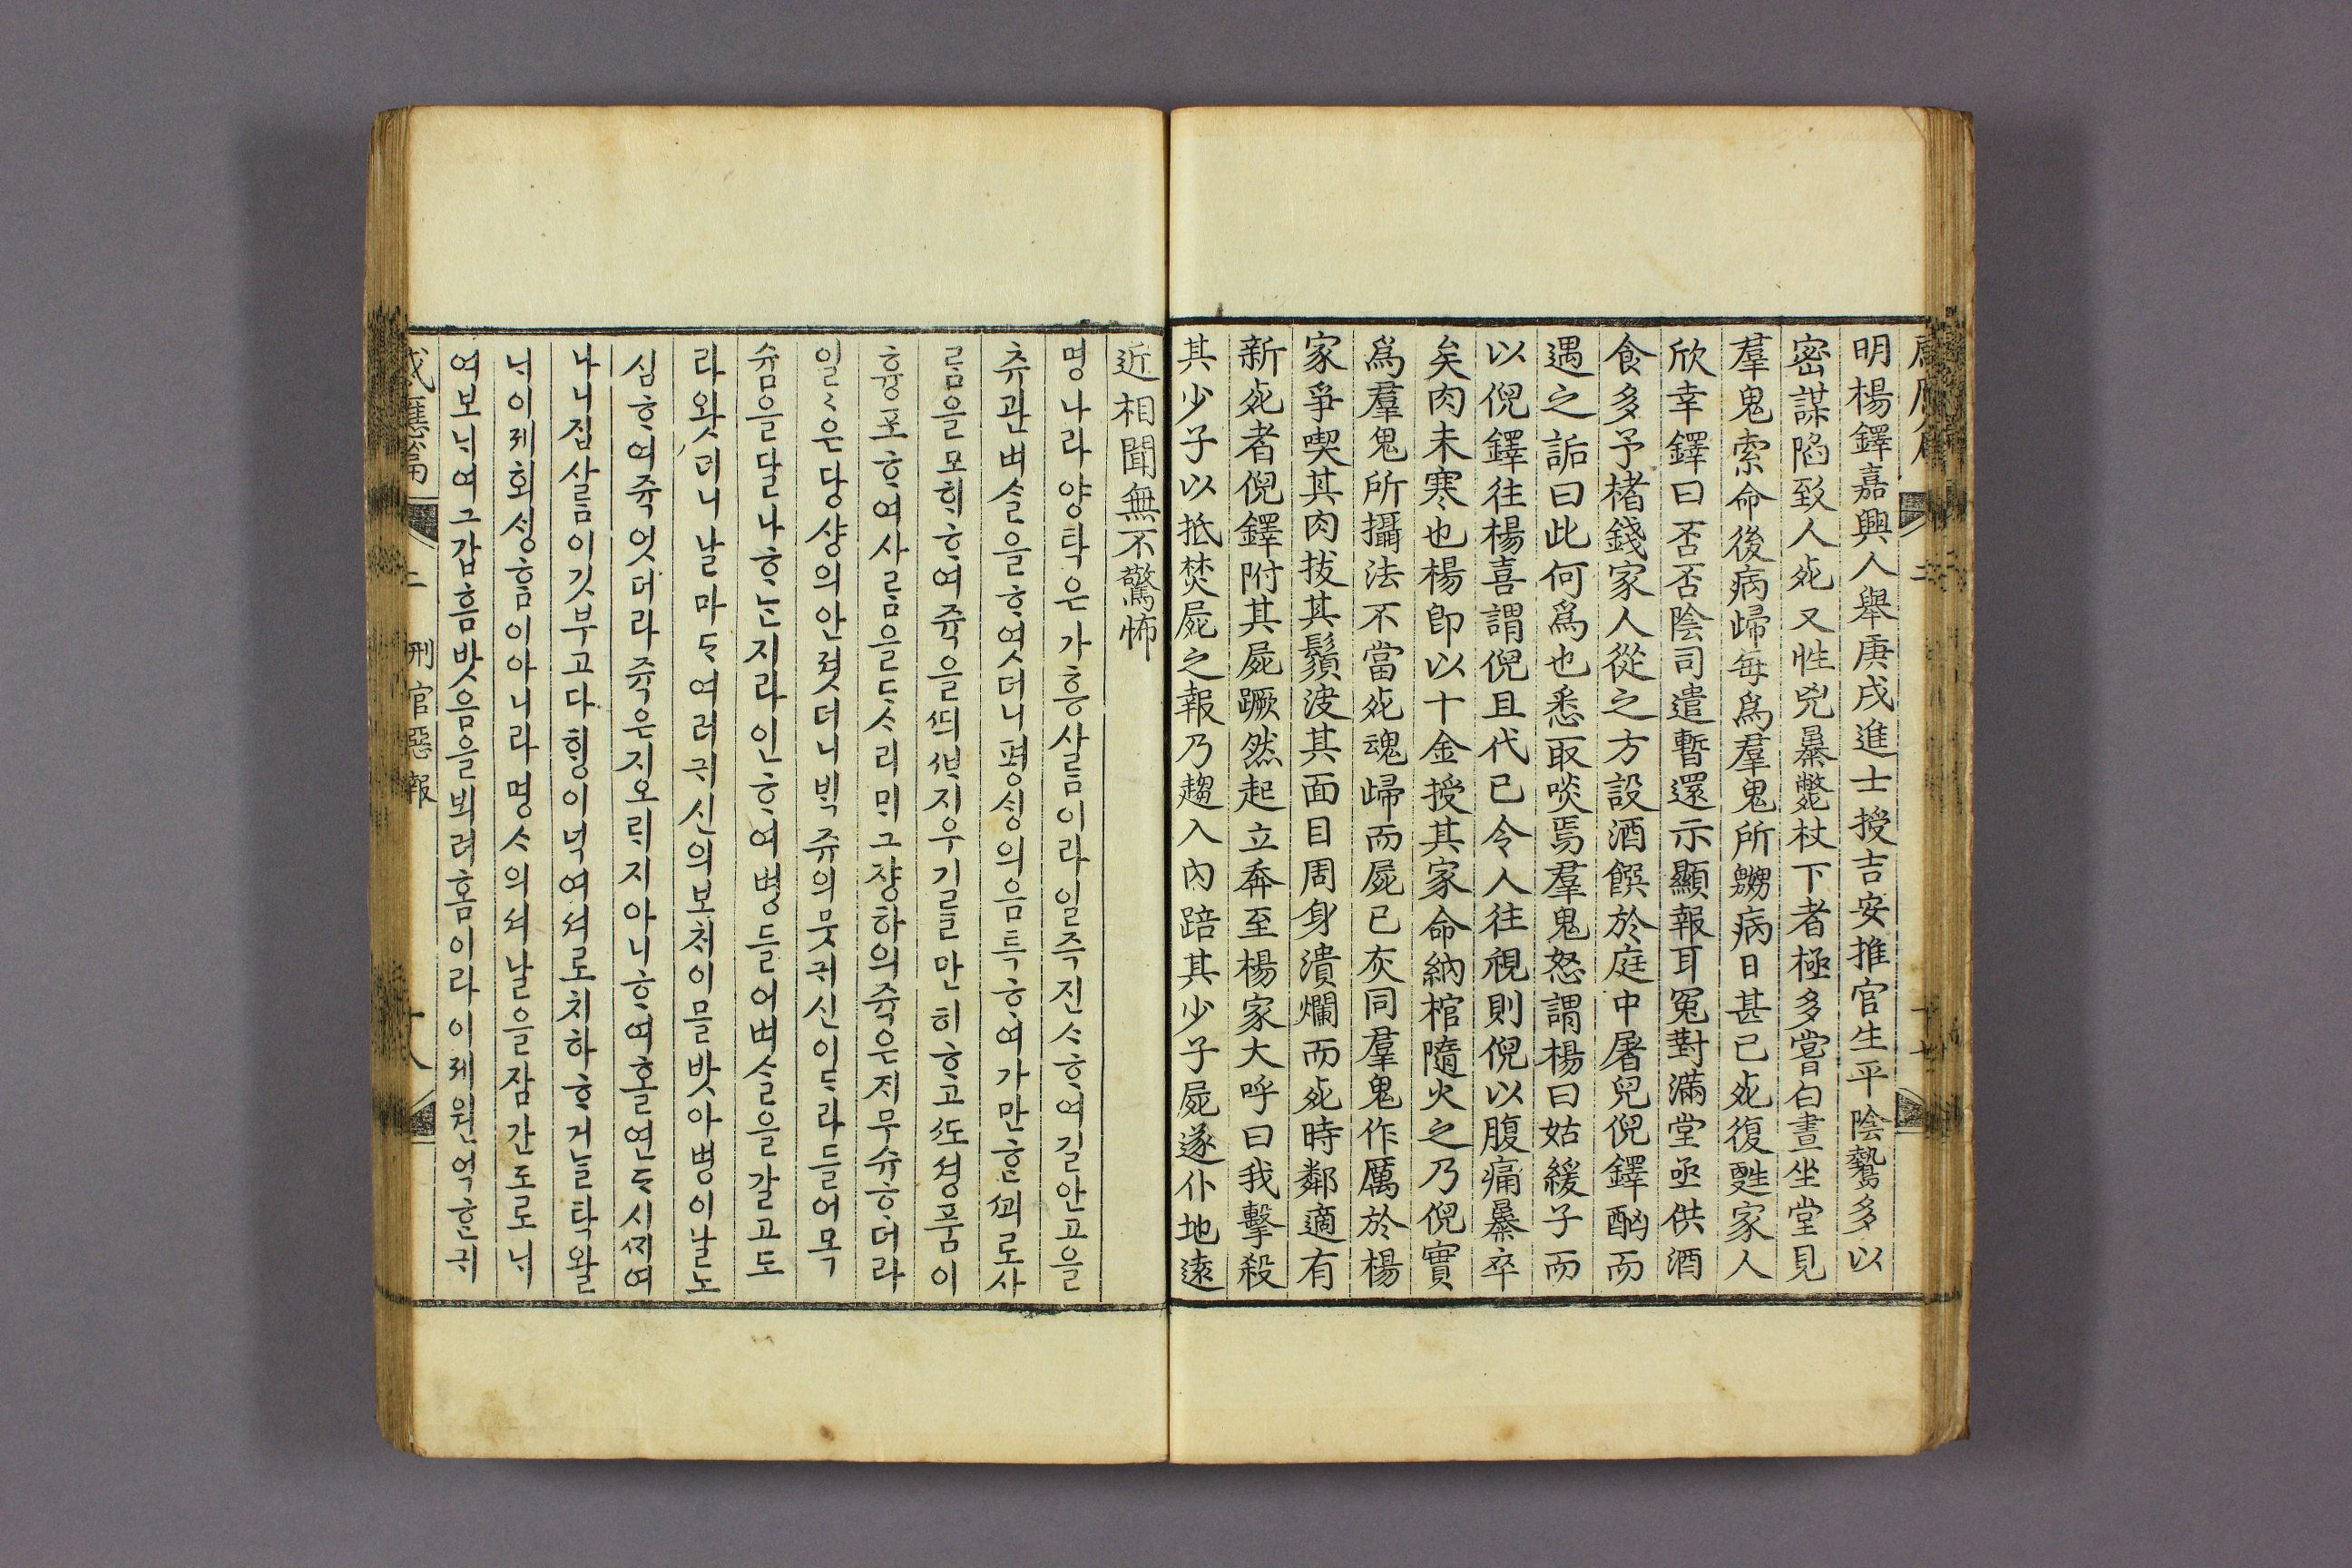 明楊鐸嘉興人舉庚戌進士授吉安推官生平陰鷙多以
密謀陷致人死又性兇暴斃杖下者極多嘗白晝坐堂見
羣鬼索命後病歸每爲羣鬼所嬲病日甚已死復甦家人
欣幸鐸曰否否陰司遣暫還示顯報耳冤對滿堂亟供酒
食多予楮錢家人從之方設酒饌於庭中屠兒倪鐸酗而
遇之詬曰此何爲也悉取啖焉羣鬼怒謂楊曰姑緩子而
以倪鐸往楊喜謂倪且代已令人往視則倪以腹痛暴卒
矣肉未寒也楊卽以十金授其家命納棺隨火之乃倪實
爲羣鬼所攝法不當死魂歸而屍已灰同羣鬼作厲於楊
家爭喫其肉拔其鬚沷其面目周身潰爛而死時鄰適有
新死者倪鐸附其屍蹶然起立奔至楊家大呼曰我擊殺
其少子以抵焚屍之報乃趨入內踣其少子屍遂仆地遠
近相聞無不驚怖
명나라양탁은가흥사ᄅᆞᆷ이라일즉진ᄉᆞᄒᆞ여길안고을
츄관벼ᄉᆞᆯ을ᄒᆞ엿더니평ᄉᆡᆼ의음특ᄒᆞ여가만ᄒᆞᆫᄭᅬ로사
ᄅᆞᆷ을모ᄒᆡᄒᆞ여쥭을ᄯᅴᄲᅡ지우기ᄅᆞᆯ만히ᄒᆞ고ᄯᅩ셩품이
흉포ᄒᆞ여사ᄅᆞᆷ을ᄃᆞᄉᆞ리ᄆᆡ그쟝하의쥭은지무슈ᄒᆞ더라
일〻은당샹의안졋더니ᄇᆡᆨ쥬의뭇귀신이ᄃᆞ라들어목
슘을달나ᄒᆞᄂᆞᆫ지라인ᄒᆞ여병들어벼ᄉᆞᆯ을갈고도
라왓더니날마ᄃᆞ여러귀신의보ᄎᆡ이믈밧아병이날노
심ᄒᆞ여쥭엇더라쥭은지오ᄅᆡ지아니ᄒᆞ여홀연ᄃᆞ시ᄭᆡ여
나니집사ᄅᆞᆷ이깃부고다ᄒᆡᆼ이넉여셔로치하ᄒᆞ거ᄂᆞᆯ탁왈
ᄂᆡ이졔회ᄉᆡᆼᄒᆞᆷ이아니라명ᄉᆞ의셔날을잠간도로ᄂᆡ
여보ᄂᆡ여그갑흠밧음을뵈려홈이라이졔원억ᄒᆞᆫ귀
感應篇 二 刑官惡報 十八